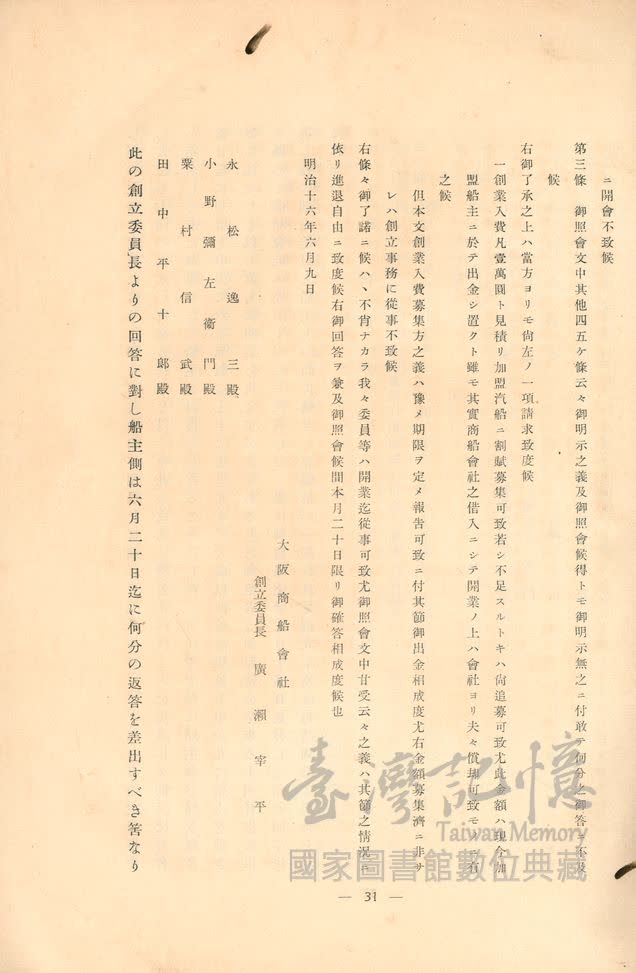 ニ開會不致候
第三條　御照會文中其他四五ケ條云々御明示之義及御照會候得トモ御明示無之ニ付敢テ何分之御答ニ不及
候
右御了承之上ハ當方ヨリモ尙左ノ一項請求致度候
一創業入費凡壹萬圓ト見積リ加盟汽船ニ割賦募集可致若シ不足スルトキハ尙追募可致尤此金額ハ現今加
盟船主ニ於テ出金シ置クト雖モ其實商船會社之借入ニシテ開業ノ上ハ會社ヨリ夫々償却可致モノニ有
之候
但本文創業入費募集方之義ハ豫メ期限ヲ定メ報吿可致ニ付其節御出金相成度尤右金額募集濟ニ非サ
レハ創立事務に從事不致候
右條々御了諾ニ候ハヽ不肖ナカラ我々委員等ハ開業迄從事可致尤御照會文中甘受云々之義ハ其節之情況ニ
依リ進退自由ニ致度候右御回答ヲ兼及御照會候間本月二十日限リ御確答相成度候也
明治十六年六月九日
大阪商船會社
創立委員長　廣瀨宰平
永松逸三殿
小野彌左衞門殿
粟村信武殿
田中平十郞殿
此の創立委員長よりの回答に對し船主側は六月二十日迄に何分の返答を差出すべき筈なり
臺灣記憶
Taiwan Memory
國家圖書館數位典藏
— 31 —